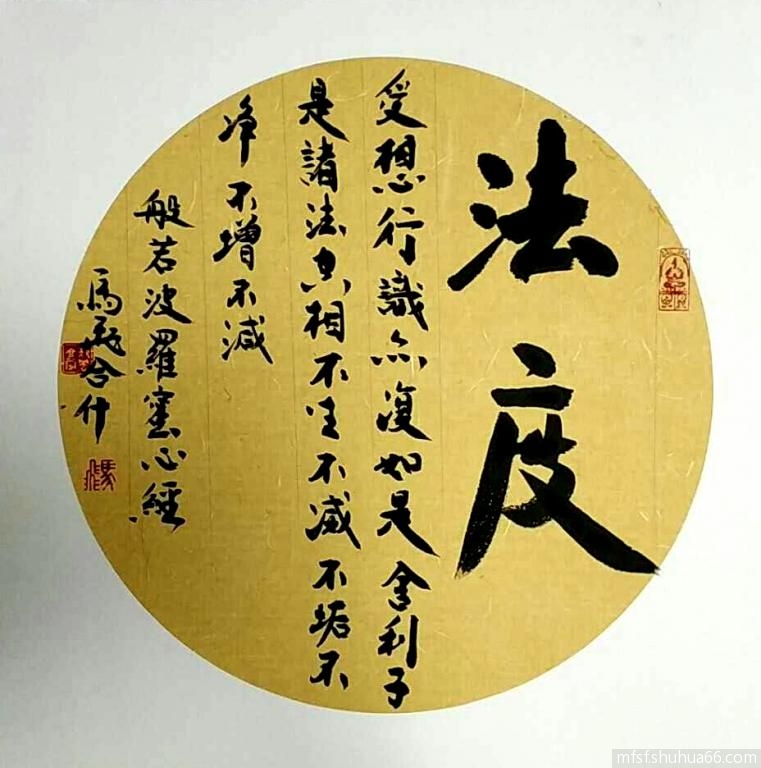 法度
受想行識亦復如是舍利子
是諸法空相不生不滅不垢不
净不增不減
般若波羅蜜心經
馬飛合什
mfsf.shuhua66.com